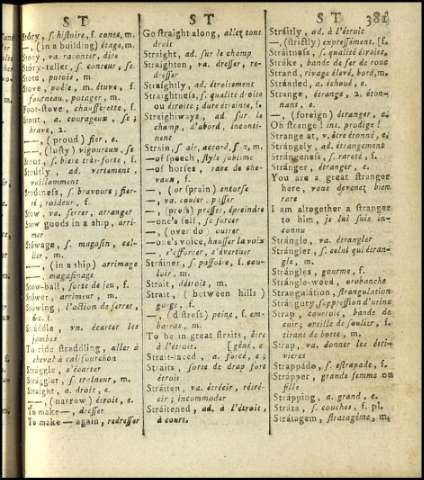 S T
S T
S T 381
Stóry, s. histoire, f. conte, m.
—, (in a building) étage, m.
Story, va. raconter, dire
Stóry-teller, s. conteur, se
Stote, putois, m
Stove, poële, m. étuve, f.
fourneau, potager, m.
Foot-stove, chaufferette, f.
Stout, a. courageux, se;
brave, 2.
—, (proud) fier, e.
—, (lusty) vigoureux, se
Stout, s. bière très-forte, f.
Stoútly, ad. vertement,
vaillamment
Stoútness, s. bravoure; fier-
té, roideur, f.
Stow, va. serrer, arranger
Stow goods in a ship, arri-
mer
Stówage, s. magasin, cel-
lier, m.
—, (in a ship) arrimage
—, magasinage
Stow-ball, sorte de jeu, f.
Stówer, arrimeur, m.
Stowing, l'action de serrer,
&c.
Stráddle, vn. écarter les
jambes
To ride straddling, aller à
cheval à califourchon
Strággle, s'écarter
Strággler, s. traîneur, m.
Straight, a. droit, e.
—, (narrow) étroit, e.
To make—, dresser
To make—again, redresser
Go straight along, allez tout
droit
Straight, ad. sur le champ
Straighten, va. dresser, re-
dresser
Straightly, ad. étroitement
Straightness, s. qualité droite
ou étroite; dure étrainte, f.
Straightways, ad. sur le
champ, d'abord, inconti-
nent
Strain, s. air, accord, s. m.
—of speech, style sublime
—of horses, race de che-
vaux, f.
—, (or sprain) entorse
—, va. couler, passer
—, (press) presser, épreindre
—one's self, se forcer
—, (over do) outrer
—one's voice, hausser la voix
—, s'efforcer, s'évertuer
Strainer, s. passoire, f. cou-
loir, m.
Strait, détroit, m.
Strait, (between hills)
gorge, f.
—, (distress) peine, f. em-
barras, m.
To be in great straits, être
à l'étroit. [gêné, e
Strait-laced, a. forcé, e;
Straits, sorte de drap fort
étroit
Straiten, va. étrécir, rétré-
cir; incommoder
Straitened, ad. à l'étroit,
à court.
Straitly, ad. à l'étroit
—, (strictly) expressément. [f.
Straitness, s. qualité étroite,
Strake, bande de fer de roue
Strand, rivage élevé, bord, m.
Stranded, a. échoué, e.
Strange, étrange, 2. éton-
nant, e.
—, (foreign) étranger, e.
Oh strange! int. prodige!
Strange at, v. être étonné, e.
Strangely, ad. étrangement
Strangeness, s. rareté, f.
Stranger, étranger, e.
You are a great stranger
here, vous devenez bien
rare
I am altogether a stranger
to him, je lui suis in-
connu
Strángle, va. étrangler
Strángler, s. celui qui étran-
gle, m.
Strángles, gourme, f.
Strángle-weed, orobanche
Strangulátion, strangulation
Strangury suppression d'urine
Strap, courroie, bande de
cuir; oreille de soulier, f.
tirant de botte, m.
Strap, va. donner les étri-
vieres
Strappádo, s. estrapade, f.
Strapper, grande femme ou
fille
Strapping, a. grand, e.
Stráta, s. couches, f. pl.
Strátagem, stratagème, m.